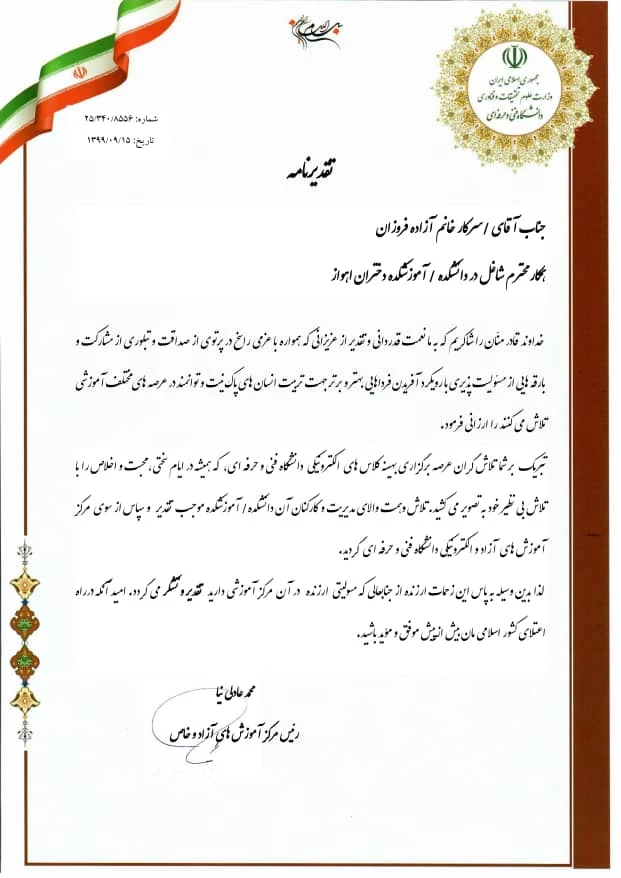 بسم الله
جمهوری اسلامی ایران
وزارت علوم تحقیقات و فناوری
دانشگاه فنی و حرفه ای
شماره: ۲۵/۳۴۰/۸۵۵۶
تاریخ: ۱۳۹۹/۰۹/۱۵
تقدیرنامه
جناب آقای /سرکار خانم آزاده فروزان
همکار محترم شاغل در دانشکده / آموزشکده دختران اهواز
خداوند قادر منّان را شاکریم که به ما نعمت قدردانی و تقدیر از عزیزانی که همواره با عزمی راسخ در پرتوی از صداقت و تبلوری از مشارکت و
بارقه هایی از مسئولیت پذیری با رویکرد آفریدن فرداهایی بهتر و برتر جهت تربیت انسان های پاک نیت و توانمند در عرصه های مختلف آموزشی
تلاش می کنند را ارزانی فرمود.
تبریک بر شما تلاش گران عرصه برگزاری بهینه کلاس های الکترونیکی دانشگاه فنی و حرفه ای، که همیشه در ایام سختی، محبت و اخلاص را با
تلاش بی نظیر خود به تصویر می کشید. تلاش و همت والای مدیریت و کارکنان آن دانشکده/ آموزشکده موجب تقدیر و سپاس از سوی مرکز
آموزش های آزاد و الکترونیکی دانشگاه فنی و حرفه ای گردید.
لذا بدین وسیله به پاس این زحمات ارزنده از جنابعالی که مسولیتی ارزنده در آن مرکز آموزشی دارید تقدیر و تشکر می گردد. امید آنکه در راه
اعتلای کشور اسلامی مان بیش از پیش موفق و مؤید باشید.
محمد عادلی نیا
رئیس مرکز آموزش های آزاد و خاص